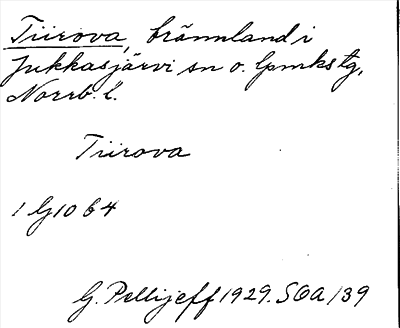 Tiirova, brännland i
Jukkasjärvi sn o. lpmkstg,
Norrb. l.
Tiirova
1 G10 b4
G. Pellijeff 1929. SOA /39